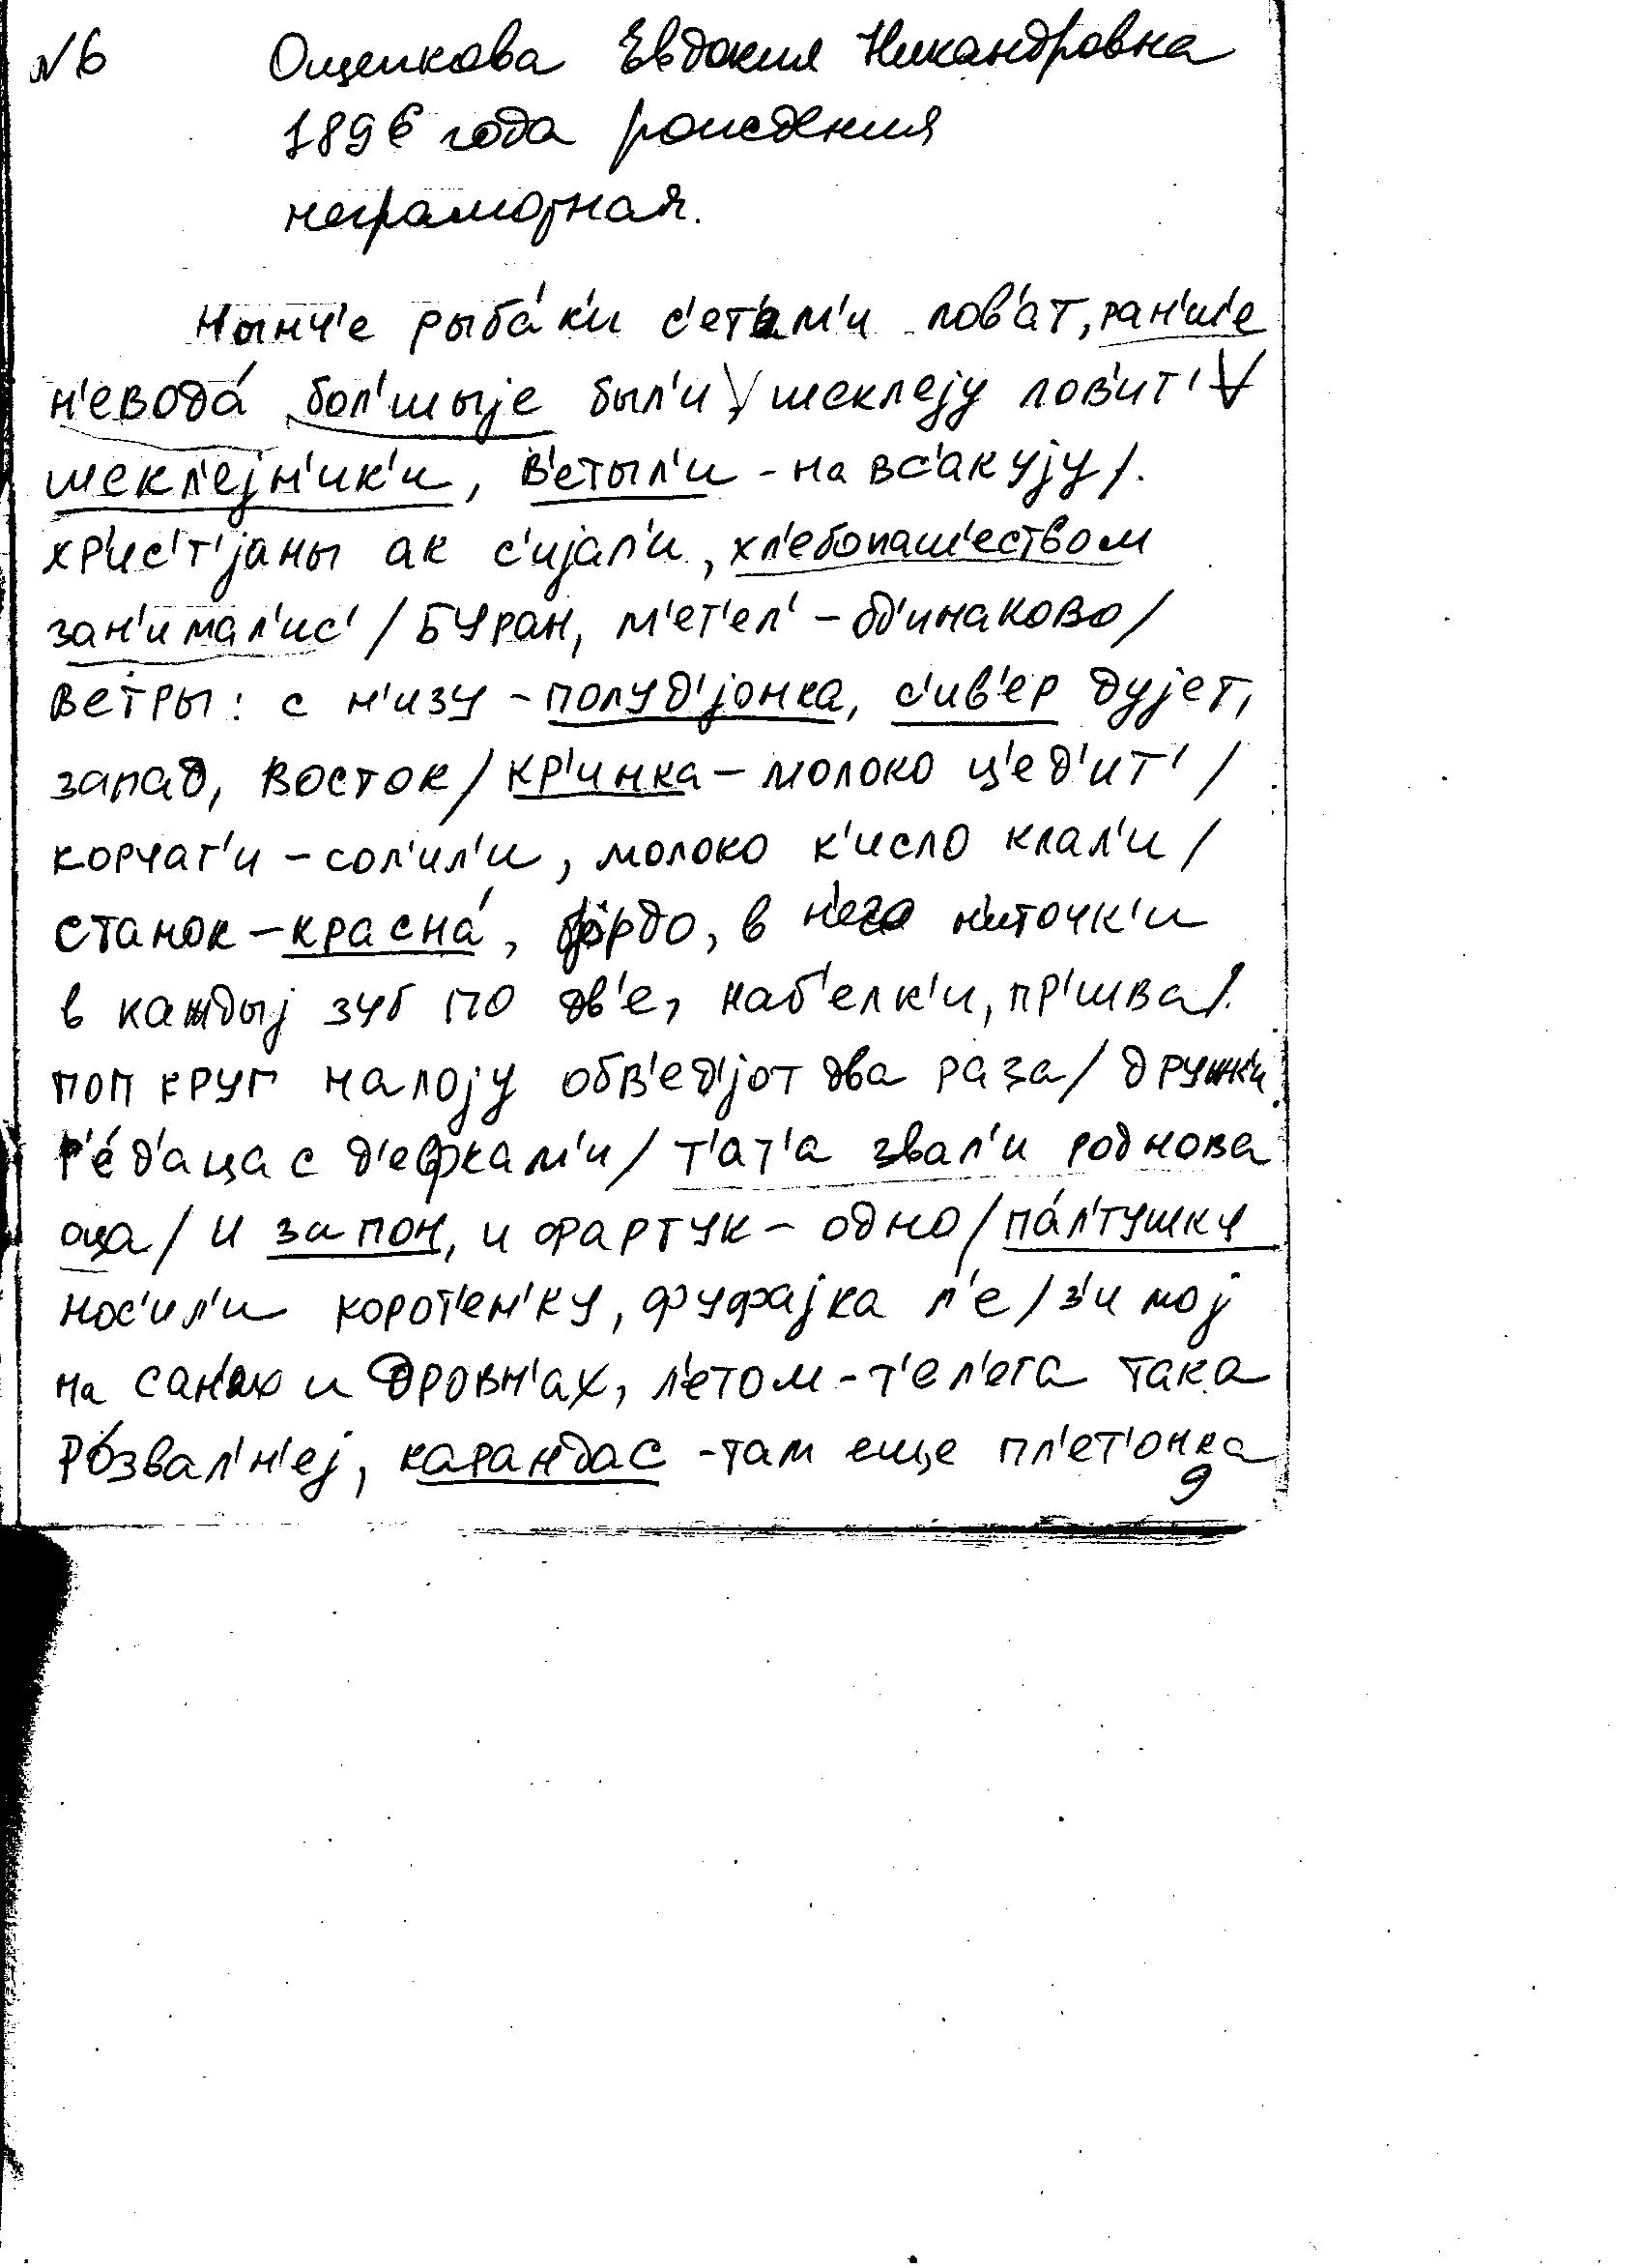 №6 Ощепкова Евдокия Никандровна
1896 года рождения
неграмотная.
Нынч'е рыба́к'и с'ет'ам'и лов'ат, ран'ше
н'евода́ бол'шыје был'и / шеклејy лов'ит' /
шекл'ејн'ик'и, в'етыл'и - на вс'акују /.
хр'ис'т'јаны ак с'ијал'и, хл'ебопаш'еством
зан'имал'ис' / Буран, м'ет'ел' - од'инаково /
ветры: с н'изу - полуд'јонка, с'ив'ер дујет,
запад, восток / кр'инка - молоко ц'ед'ит' /
корчаг'и - сол'ил'и, молоко к'исло клал'и /
станок - красна́, бјордо, в н'его н'иточк'и
в каждыј зуб по дв'е, наб'елк'и, пр'ишва /.
поп круг налоју обв'ед'јот два раза / дружк'и
р'е́д'аца с д'ефкам'и / т'ат'а звал'и роднова
оца / и запон, и фартук - одно / па́л'тушку
нос'ил'и корот'ен'ку, фуфајка л'е / з'имој
на сан'ах и дровн'ах, л'етом - т'ел'ега така
ро́звал'н'еј, карандас - там еще пл'ет'онка
9